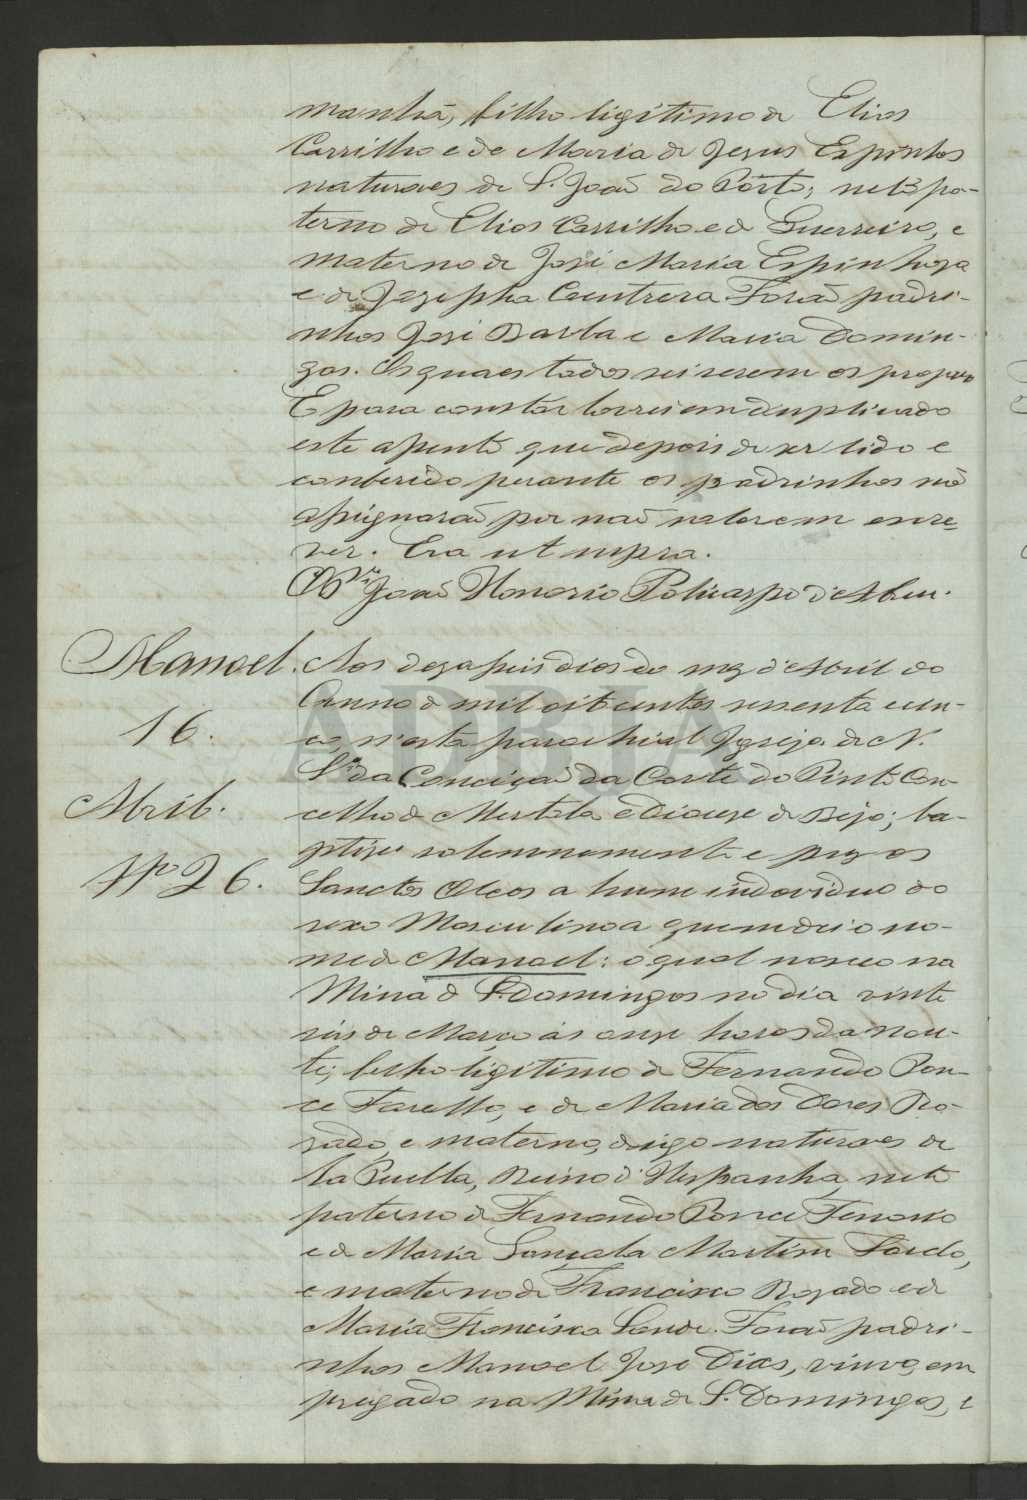 manhã, filho ligitimo de Elias
Carrilho e de Maria de Jesus Espinhos
naturaes de S. João do Porto; neto pa-
terno de Elias Carrilho e de Guerreiro, e
materno de José Maria Espinhosa
e de Jozepha Contrera Forão padri-
nhos José Barba e Maria Domin-
gas. Os quaes todos sei serem os proprios
E para constar lavrei em duplicado
este assento que depois de ser lido e
conferido perante os padrinhos não
assignarão por não saberem escre-
ver. Era ut supra.
O Pr. João Honorio Policarpo d'Abreu.
Manoel. Aos dezaseis dias do mez d'Abril do
Anno de mil oitocentos sessenta e cin-
16.
co, n'esta parochial Igreja de N.
Sra. da Conceição da Corte do Pinto Con-
Abril.
celho de Mertola e Diocese de Beja; ba-
ptisei solemnemente e puz os
Nº 26.
Sanctos Oleos a hum individuo do
sexo Masculino a quem dei o no-
me de Manoel: o qual nasceo na
Mina de S. Domingos no dia vinte
seis de Março ás onze horas da nou-
te; filho ligitimo de Fernando Pon-
ce Farello, e de Maria das Dores Ro-
zado, e materno, digo naturaes de
la Puebla, Reino d'Hespanha, neto
paterno de Fernando Ponce Tenorio
e de Maria Gonçala Martim Pardo,
e materno de Francisco Rozado e de
Maria Francisca Conde. Forão padri-
nhos Manoel José Dias, viuvo, em
pregado na Mina de S. Domingos, e
ADBJA